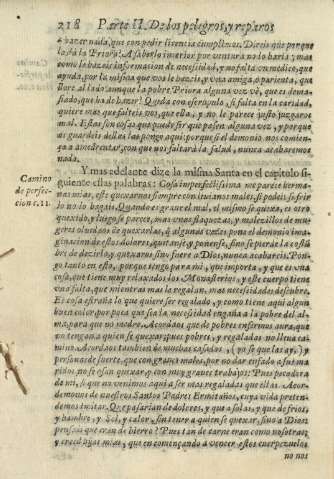 218 Parte II. De los peligros, y reparos
a hazer nada, que con pedir licencia cumplimos. Direis que porque
la da la Priora? A saberlo interior por ventura no lo haria; mas
como la hazeis informacion de necessidad, y no falta un medico, que
ayuda, por la misma que vos le hazeis, y una amiga, ò parienta, que
llore al lado, aunque la pobre Priora alguna vez vè, que es dema-
siado, que ha de hazer? Queda con escrupulo, si falta en la caridad,
quiere mas que falteis vos, que ella, y no le parece justo juzgaros
mal. Estas son cosas que puede ser que passen alguna vez, y porque
os guardeis dellas las pongo aqui: porque si el demonio nos comien-
ça a amedrentar, con que nos faltarà la salud, nunca acabaremos
nada.
Y mas adelante dize la misma Santa en el capitulo si-
guiente estas palabras: Cosa imperfectissima me parece herma-
nas mias, este quexarnos siempre con livianos males, si podeis sufrir-
lo no lo hagais. Quando es grave el mal, el mismo se quexa, es otro
quexido, y luego se parece, mas unas flaquezas, y malezillos de mu-
geres olvidaos de quexarlas, que algunas vezes pone el demonio ima-
ginacion de estos dolores, quitanse, y ponense, sino se pierde la costũ-
bre de dezirlo, y quexaros sino fuere a Dios, nunca acabareis. Pon-
go tanto en esto, porque tengo para mi, que importa, y que es una
cosa, que tiene muy relaxados los Monasterios, y este cuerpo tiene
una falta, que mientras mas le regalan, mas necessidades descubre.
Es cosa estraña lo que quiere ser regalado, y como tiene aqui algun
buen color por poca que sea la necessidad engaña a la pobre del al-
ma, para que no medre. Acordaos que de pobres enfermos aura, que
no tengan a quien se quexar: pues pobres, y regaladas no lleva ca-
mino. Acordaos tambien de muchas casadas, (yo se que las ay,) y
personas de suerte, que con graves males, por no dar enfado a sus ma-
ridos, no se osan quexar, y con muy graves trabajos: Pues pecadora
de mi, si que no venimos aqui a ser mas regaladas que ellas. Acor-
demonos de nuestros Santos Padres Ermitaños, cuya vida preten-
demos imitar. Que passarian de dolores, y que a solas, y que de frios,
y hambre, y Sol, y calor, sin tener a quien se quexar, sino a Dios?
pensais que eran de hierro? Pues tan de carne eran como nosotras,
y creed hijas mias, que en començando a vencer estos cuerpezuelos
no nos
Camino
de perfec-
cion c. 11.